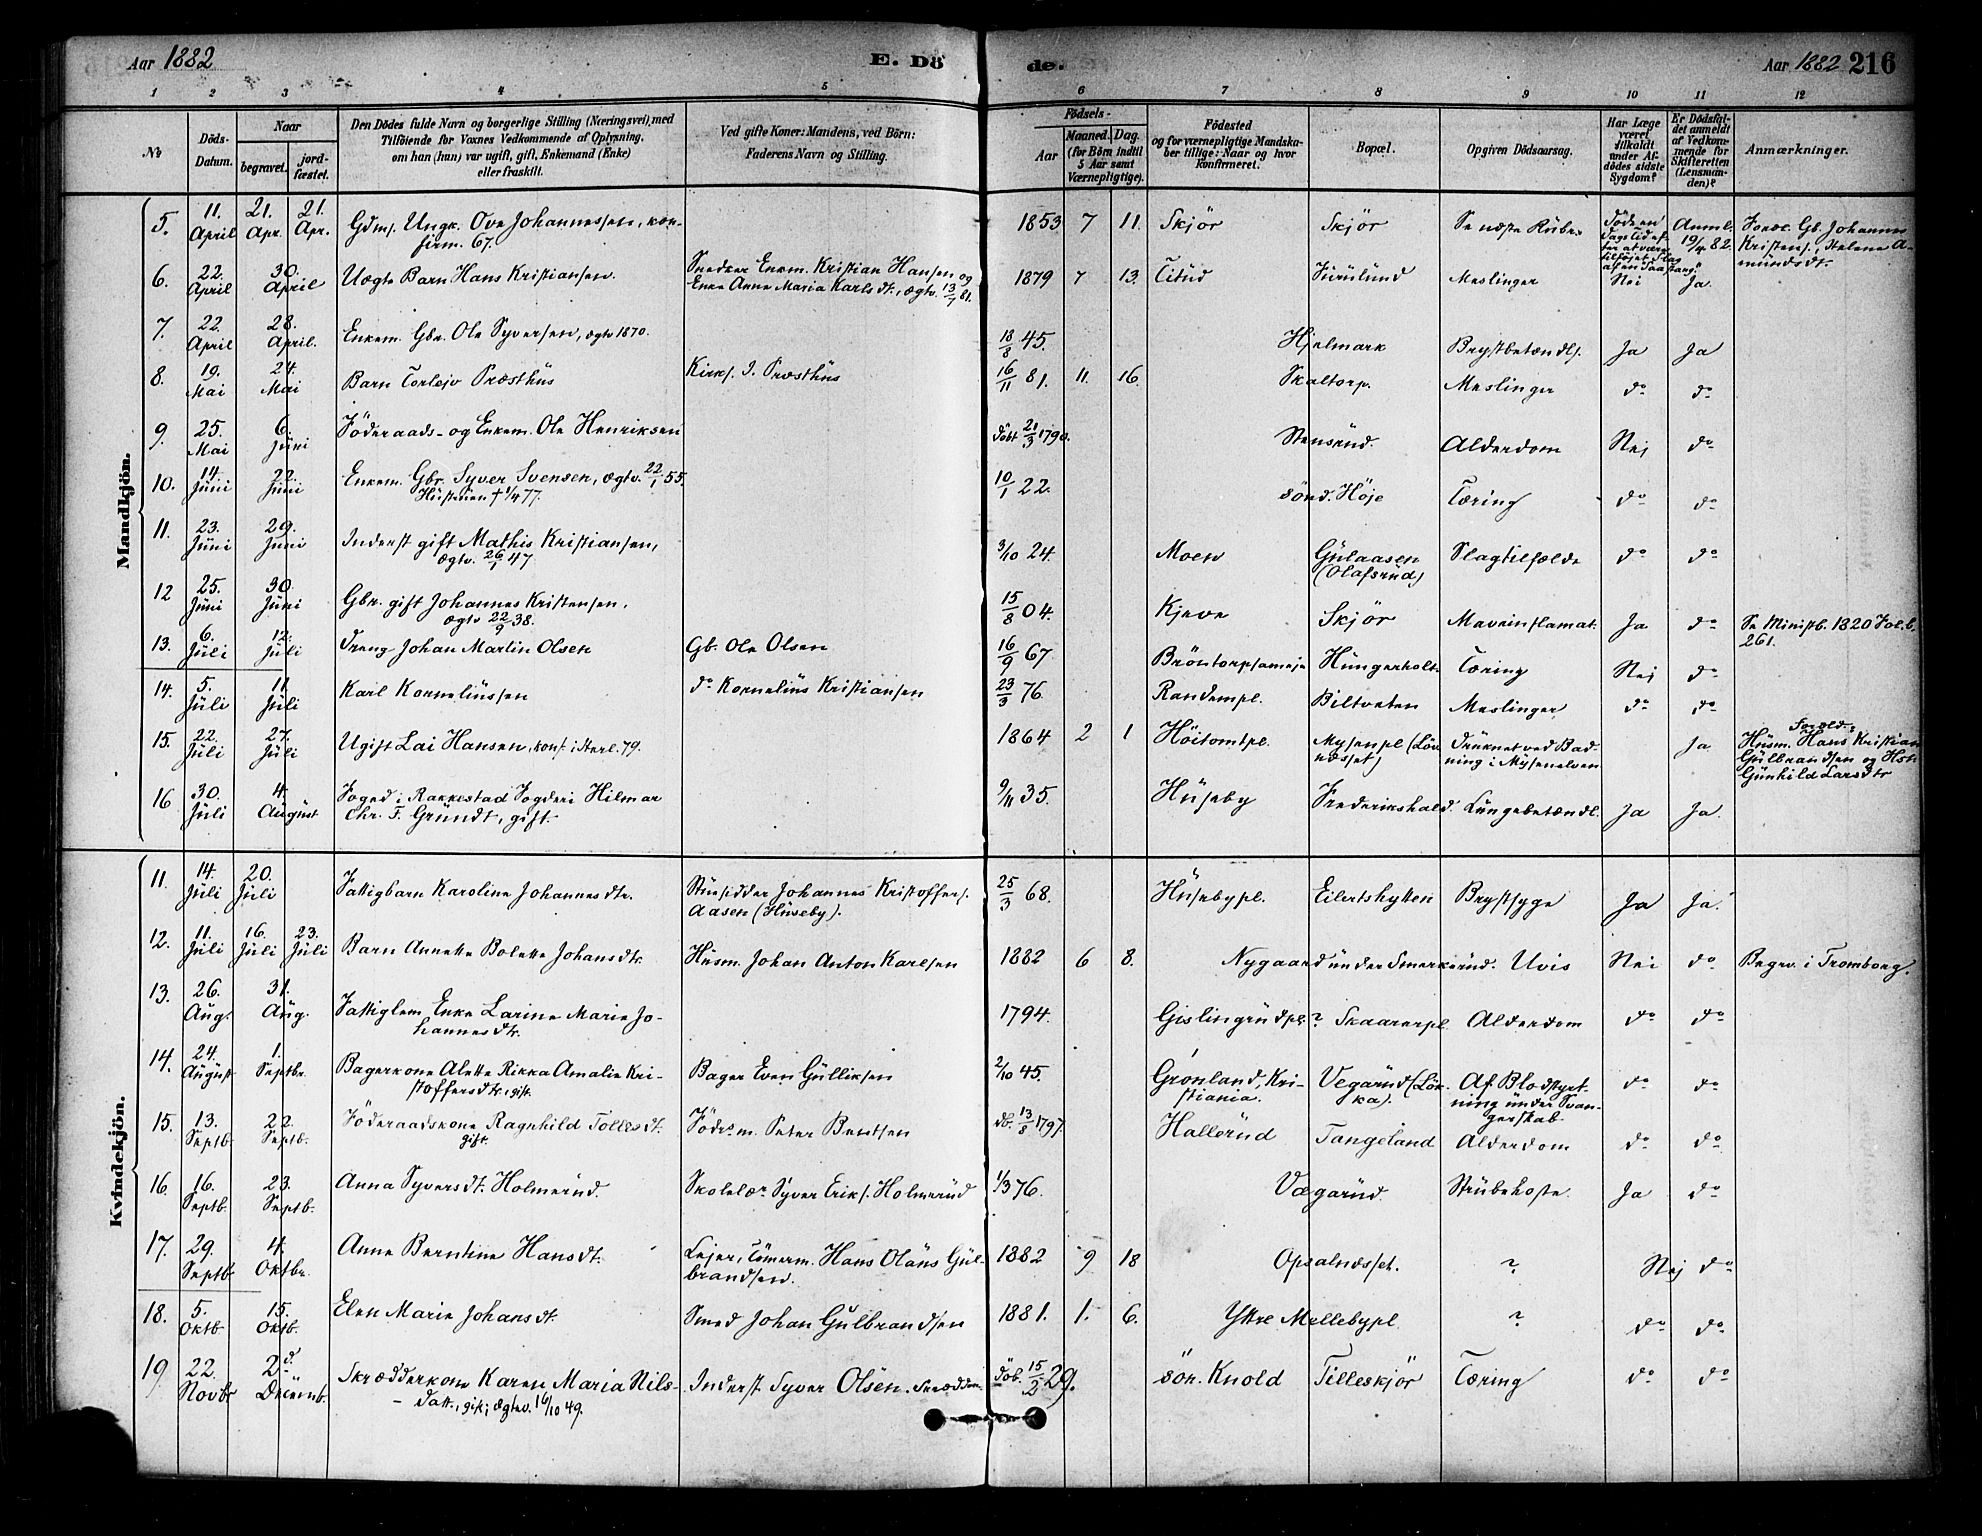 Aar 1882 E. Dö de. Aar 1882 216
1 2 3 4 5 6 7 8 9 10 11 12
No
Döds-Datum.
Naar begravet. jord-fæstet.
Den Dödes fulde Navn og borgerlige Stilling (Næringsvei), med
Tilföiende for Voxnes Vedkommende af Oplysning.
om han (hun) var ugift, gift, Enkemand (Enke)
eller fraskilt.
Ved gifte Koner: Mandens, ved Börn:
Faderens Navn og Stilling.
Födsels-
Aar Maaned. Dag.
(for Börn indtil
5 Aar samt
Værnepligtige).
Födested
og for værnepligtige Mandska-
ber tillige: Naar og hvor
konfirmeret.
Bopæl.
Opgiven Dödsaarsag.
Har Læge
været
tilkaldt
under Af-
dödes sidste
Sygdom?
Er Dödsfal-
det anmeldt
af Vedkom-
mende for
Skifteretten
(Lensman-
den)?
Anmærkninger.
Mandkjön.
5. 11. April 21. Apr. 21. Apr. Gdms. Ungk. Ove Johannessen, kon-
firm. 67. 1853 7 11. Skjör Skjör Anml. 19/4 82. Foræl. Gb. Johannes
Kristens., Helene A-
mündsdt.
6. 22. April 30. April Uægte Barn Hans Kristiansen. Snedker Enkem. Kristian Hansen og
Enke Anne Maria Karlsdt., ægtv. 13/7 81. 1879 7 13. Titüd Jürülünd Meslinger Nei Ja.
7. 22. April 28. April. Enkem. Gbr. Ole Syversen, ægtv 1870. 18/8 45. Hjelmark Brystbetændls. Ja Ja
8. 19. Mai 24. Mai Barn Torleiv Præsthüs Kirks. I. Præsthüs 16/11 81. 11. 16. Skaltorp. Meslinger do do
9. 25. Mai 6. Jüni Föderaads- og Enkem. Ole Henriksen döbt 21/3 1790. Stensrüd. Alderdom Nej do
10. 14 Jüni 22. Jüni Enkem. Gbr. Syver Svensen, ægtv. 22/1 55.
Hüstrüen † 1/4 77. 10/1 22. sönd. Höje Tæring do do
11. 23. Jüni 29. Jüni Inderst gift Mathis Kristiansen,
ægtv. 26/1 47 3/10 24. Moen Gülaasen
(Olafsrüd) Slagtilfælde do do
12 25. Jüni 30. Jüni Gbr. gift Johannes Kristensen.
ægtv 22/9 38. 15/8 04. Kjeve Skjör Maveinflamat. Ja do Se Ministb. 1820 Fol. b.
261.
13. 6. Jüli 12. Jüli Dreng Johan Martin Olsen Gb. Ole Olsen 16/9 67. Bröntorpsameie Hüngerholt. Tæring Nej do
14. 5. Jüli 11. Jüli Karl Kornelüssen do Kornelius Kristiansen 23/3 76. Randempl. Biltveten Meslinger do do
15. 22. Jüli 27. Jüli Ugift Lai Hansen, konf. i Herl. 79. 1864 2 1 Höitomtpl. Mysenpl (Löv
næsset) Drüknet ved Bad-
ning i Mysenelven Ja Foræld.
Hüsm. Hans Kristian
Gülbrandsen og Hst.
Günhild Larsdtr
16 30. Jüli 4. Aügüst Foged i Rakkestad Fogderi Hilmar
Chr. F. Gründt, gift. 9/11 35. Hüseby Frederikshald. Lüngebetændl. Ja Ja.
Kvindekjön.
11. 14. Jüli 20. Jüli Fattigbarn Karoline Johannesdtr. Stüesidder Johannes Kristoffers.
Aasen (Hüseby). 25/3 68. Hüsebypl. Eilertshytten Brystsyge Ja Ja.
12. 11. Jüli 16. Jüli 23. Jüli Barn Annette Bolette Johansdtr. Hüsm. Johan Anton Karlsen 1882 6 8. Nygaard ünder Smerkerüd. Uvis Nei do Begrv. i Tromborg.
13. 26. Aüg. 31. Aüg. Fattiglem Enke Larine Marie Jo-
hannesdtr. 1794. Gislingrüdpl.? Skaarerpl Alderdom do do
14. 24. Aügüst 1. Septbr. Bagerkone Alette Rikka Amalie Kri-
stoffersdtr., gift. Bager Even Gülliksen 2/10 45. Grönland, Kri-
stiania. Vegarüd (Löv-
ka). Af Blodstyrt-
ning ünder Svan-
gerskab do do
15. 13. Septb. 22. Septb. Föderaadskone Ragnhild Tollesdt.
gift. Föderm. Peter Berntsen db. 13/8 1797 Hallerüd Tangeland Alderdom do do
16. 16. Septb. 23. Septb. Anna Syversdt. Holmerüd. Skolelær. Syver Eriks. Holmerüd 1/3 76. Vægarüd. Strübehoste. Ja do
17. 29. Septb 4. Oktbr. Anne Berntine Hansdt. Lejer, Tömerm. Hans Olaüs Gül-
brandsen. 1882 9 18 Opsalnesset. ? Nej do
18. 5. Oktb 15. Oktb. Elen Marie Johansdt. Smed Johan Gülbrandsen 1881. 1. 6. Ytre Mellebypl ? do do
19 22. Novbr 2d. Decemb. Skrædderkone Karen Maria Nils-
datt., gift; ægtv. 16/10 49. Inderst Syver Olsen. Skrædder. döb. 15/2 29. sön. Knold Tilleskjör Tæring do do